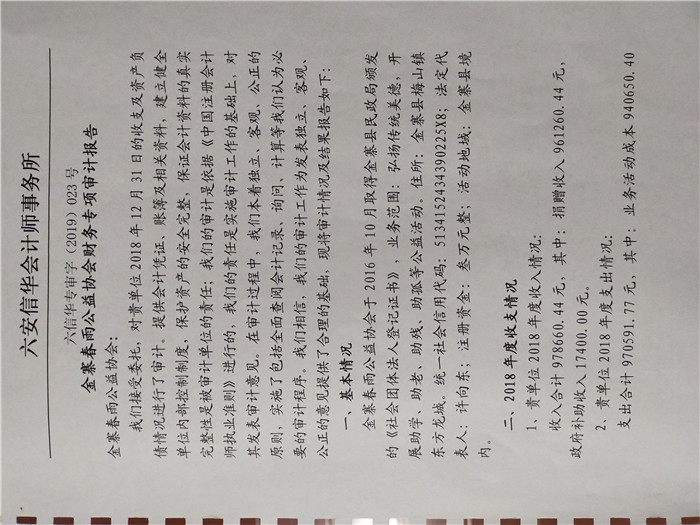 六安信华会计师事务所
六信华专审字（2019）023 号
金寨春雨公益协会财务专项审计报告
金寨春雨公益协会：
我们接受委托，对贵单位 2018 年 12 月 31 日的收支及资产负
债情况进行了审计。提供会计凭证、账簿及相关资料，建立健全
单位内部控制制度，保护资产的安全完整，保证会计资料的真实
完整性是被审计单位的责任；我们的审计是依据《中国注册会计
师执业准则》进行的，我们的责任是实施审计工作的基础上，对
其发表审计意见。在审计过程中，我们本着独立、客观、公正的
原则，实施了包括全面查阅会计记录、询问、计算等我们认为必
要的审计程序。我们相信，我们的审计工作为发表独立、客观、
公正的意见提供了合理的基础，现将审计情况及结果报告如下：
一、基本情况
金寨春雨公益协会于 2016 年 10 月取得金寨县民政局颁发
的《社会团体法人登记证书》，业务范围：弘扬传统美德，开
展助学、助老、助残、助孤等公益活动。住所：金寨县梅山镇
东方龙城。统一社会信用代码：5134152434390225X8；法定代
表人：许向东；注册资金：叁万元整；活动地域：金寨县境
内。
二、2018 年度收支情况
1、贵单位 2018 年度收入情况：
收入合计 978660.44 元，其中：捐赠收入 961260.44 元，
政府补助收入 17400.00 元。
2、贵单位 2018 年度支出情况：
支出合计 970591.77 元，其中：业务活动成本 940650.40